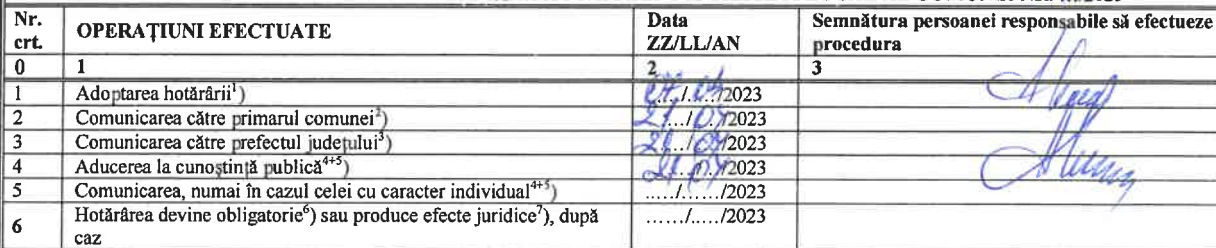 Nr. crt. OPERAȚIUNI EFECTUATE Data ZZ/LL/AN Semnătura persoanei responsabile să efectueze procedura
0 1 2 3
1 Adoptarea hotărârii¹) /2023
2 Comunicarea către primarul comunei²) /2023
3 Comunicarea către prefectul județului³) /2023
4 Aducerea la cunoștință publică⁴⁺⁵) /2023
5 Comunicarea, numai în cazul celei cu caracter individual⁴⁺⁵) ...../....../2023
6 Hotărârea devine obligatorie⁶) sau produce efecte juridice⁷), după caz ....../...../2023